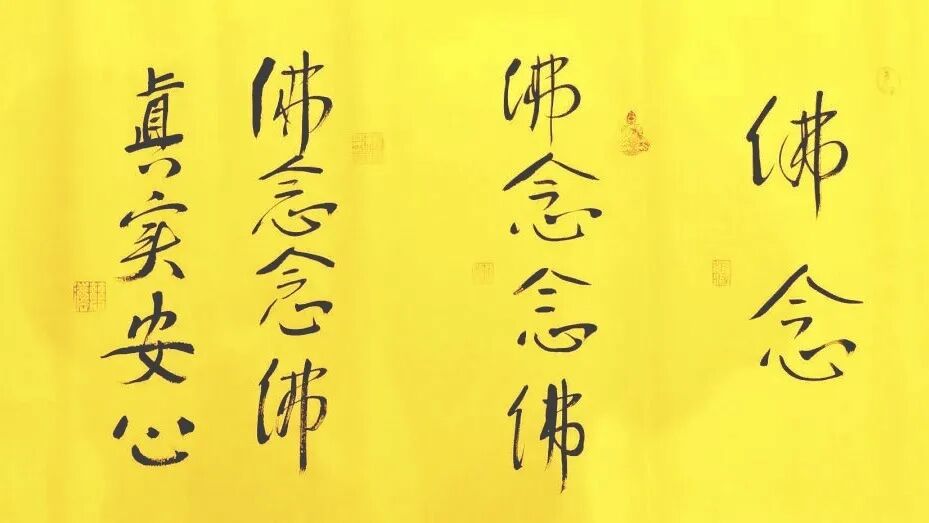 佛念
佛念念佛
佛念念佛
真实安心